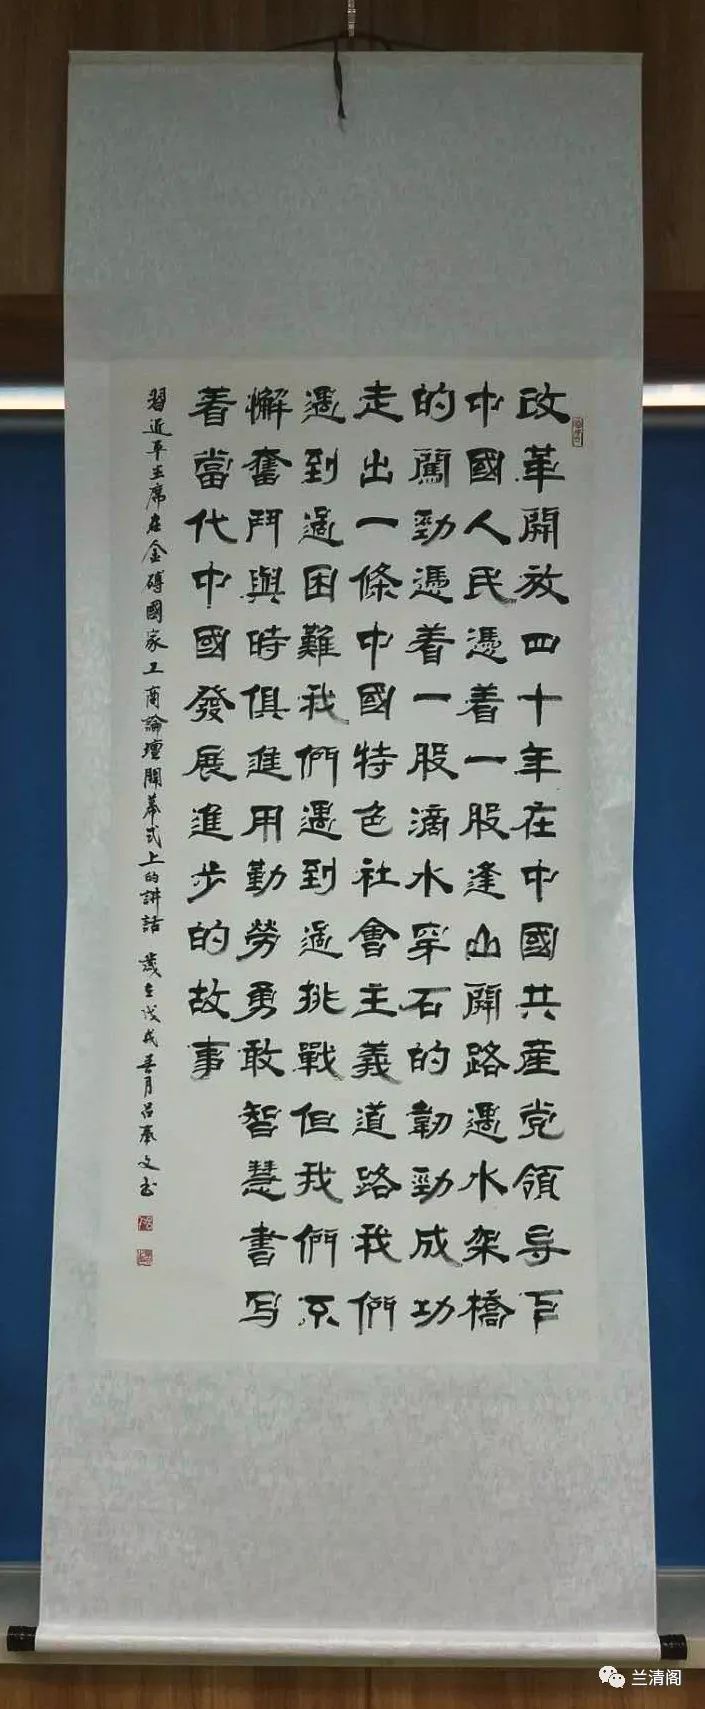 改革開放四十年在中國共産党領导下
中國人民憑着一股逢山開路遇水架橋
的闖勁憑着一股滴水穿石的韌勁成功
走出一條中國特色社會主義道路我們
遇到過困難我們遇到過挑戰但我們不
懈奮鬥與時俱進用勤勞勇敢智慧書写
着當代中國發展進步的故事
習近平主席在金磚國家工商論壇開幕式上的講話 歲在戊戌春月吕奉文书
兰清阁